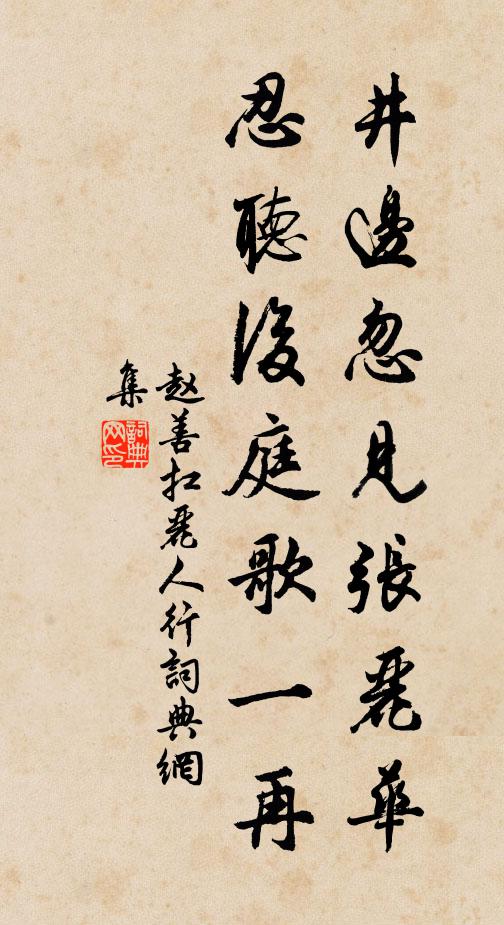 井邊忽見張麗華
忍聽後庭歌一再
赵善扛麗人行詞典網
集
詞典
网印